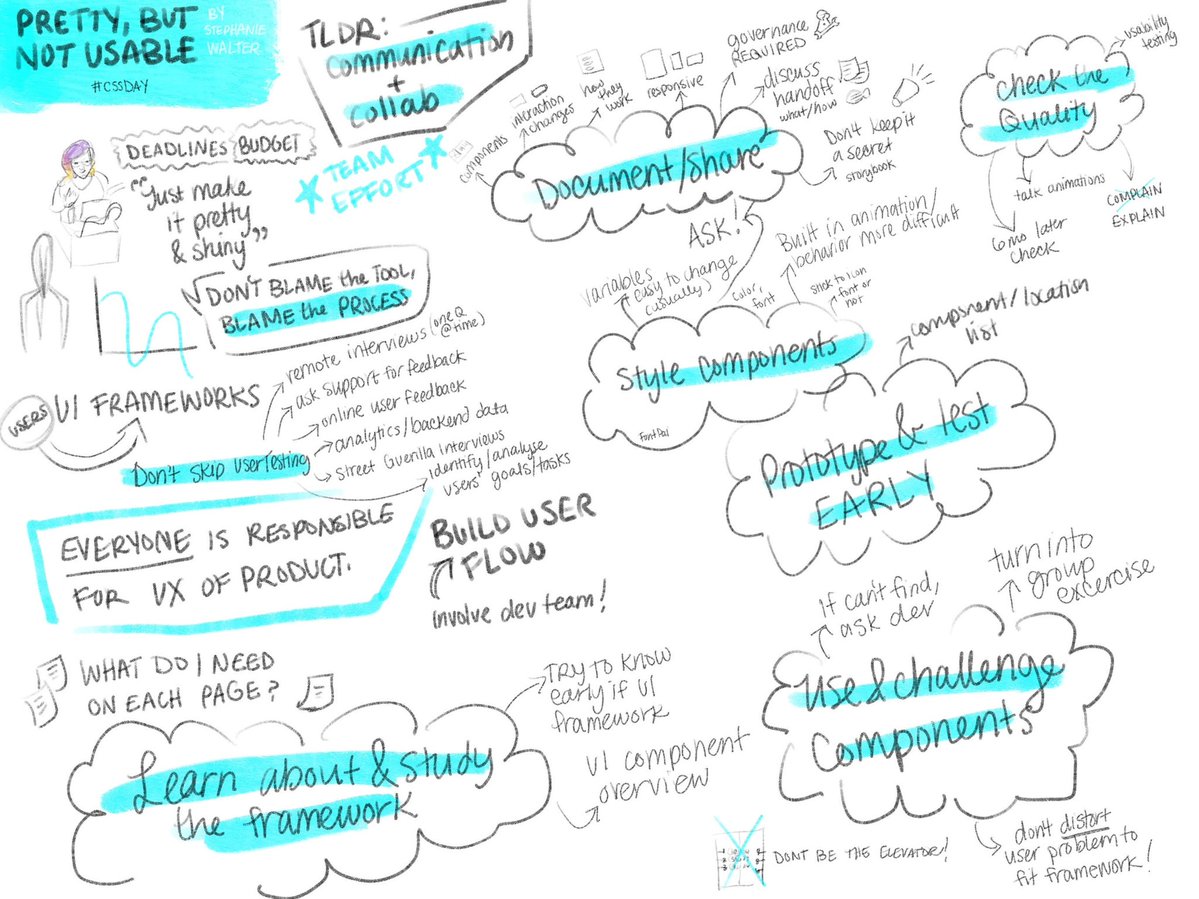 PRETTY, BUT
NOT USABLE
BY
STEPHANIE
WALTER
#CSSDAY
TLDR:
Communication
+
Collab
TEAM
EFFORT
DEADLINES BUDGET
"Just make
it pretty
& shiny"
DON'T BLAME the TOOL,
BLAME the PROCESS
USERS
UI FRAMEWORKS
Don't skip user Testing
remote interviews (one Q
@time)
ask support for feedback
online user feedback
analytics/backend data
street Guerilla Interviews
identify/analyse
users' goals/tasks
EVERYONE IS RESPONSIBLE
FOR UX OF PRODUCT.
BUILD USER
FLOW
involve dev team!
WHAT DO I NEED
ON EACH PAGE?
Learn about & study
the framework
TRY to know
early if UI
framework
UI component
overview
Document/share
components
interaction
changes
how
they
work
responsive
governance
REQUIRED
discuss
handoff
what/how
Don't keep it
a secret
storybook
ASK!
check the
Quality
usability
testing
talk animations
6 mo later
check
COMPLAIN
EXPLAIN
style components
variables
easy to change
(usually)
color,
font
Built in animation/
behavior more difficult
stick to icon
font or
not
FontPal
Prototype & test
EARLY
component/location
list
Use & challenge
Components
if can't find,
ask dev
turn into
group
excercise
don't distort
user problem to
fit framework!
DONT BE THE ELEVATOR!